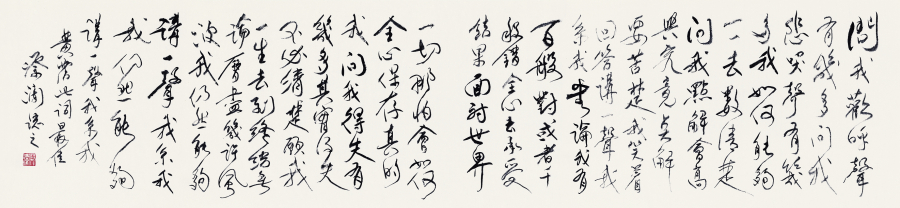 問我歡呼聲
有幾多問我
悲哭聲有幾
多我如何能夠
一一去數清楚
問我點解會高
興究竟點解
要苦楚我笑着
回答講一聲我
系我無論我有
百般對或者千
般錯全心去承受
結果面對世界
一切那怕會如何
全心保存真的
我問我得失有
幾多其實得失
不必清楚願我
一生去到終結無
論歷盡幾許風
波我仍然能夠
講一聲我系我
我仍然能夠
講一聲我系我
黃霑此詞最佳